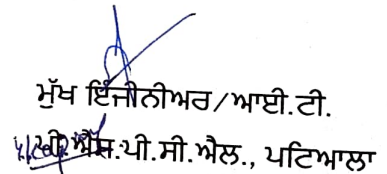 ਮੁੱਖ ਇੰਜੀਨੀਅਰ/ਆਈ.ਟੀ.
ਪੀ.ਐਸ.ਪੀ.ਸੀ.ਐਲ., ਪਟਿਆਲਾ